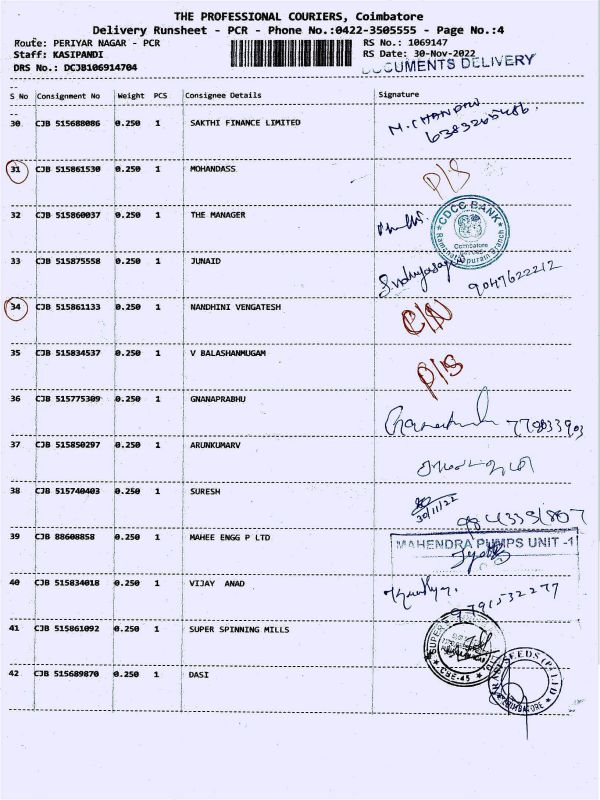 THE PROFESSIONAL COURIERS, Coimbatore
Delivery Runsheet - PCR - Phone No.:0422-3505555 - Page No.:4
Route: PERIYAR NAGAR - PCR RS No.: 1069147
Staff: KASIPANDI RS Date: 30-Nov-2022
DRS No.: DCJB106914704 DOCUMENTS DELIVERY
S No Consignment No Weight PCS Consignee Details Signature
30 CJB 515688086 0.250 1 SAKTHI FINANCE LIMITED M. CHANDAN
31 CJB 515861530 0.250 1 MOHANDASS P/S
32 CJB 515860037 0.250 1 THE MANAGER CDCC BANK Coimbatore Ramanathapuram Branch
33 CJB 515875558 0.250 1 JUNAID 9047622212
34 CJB 515861133 0.250 1 NANDHINI VENGATESH
35 CJB 515834537 0.250 1 V BALASHANMUGAM P/S
36 CJB 515775309 0.250 1 GNANAPRABHU
37 CJB 515850297 0.250 1 ARUNKUMARV
38 CJB 515740403 0.250 1 SURESH 30/11/22
39 CJB 88608858 0.250 1 MAHEE ENGG P LTD MAHENDRA PUMPS UNIT -1
40 CJB 515834018 0.250 1 VIJAY ANAD 9791532277
41 CJB 515861092 0.250 1 SUPER SPINNING MILLS SUPER CBE-45
42 CJB 515689870 0.250 1 DASI SEEDS (P) LTD COIMBATORE